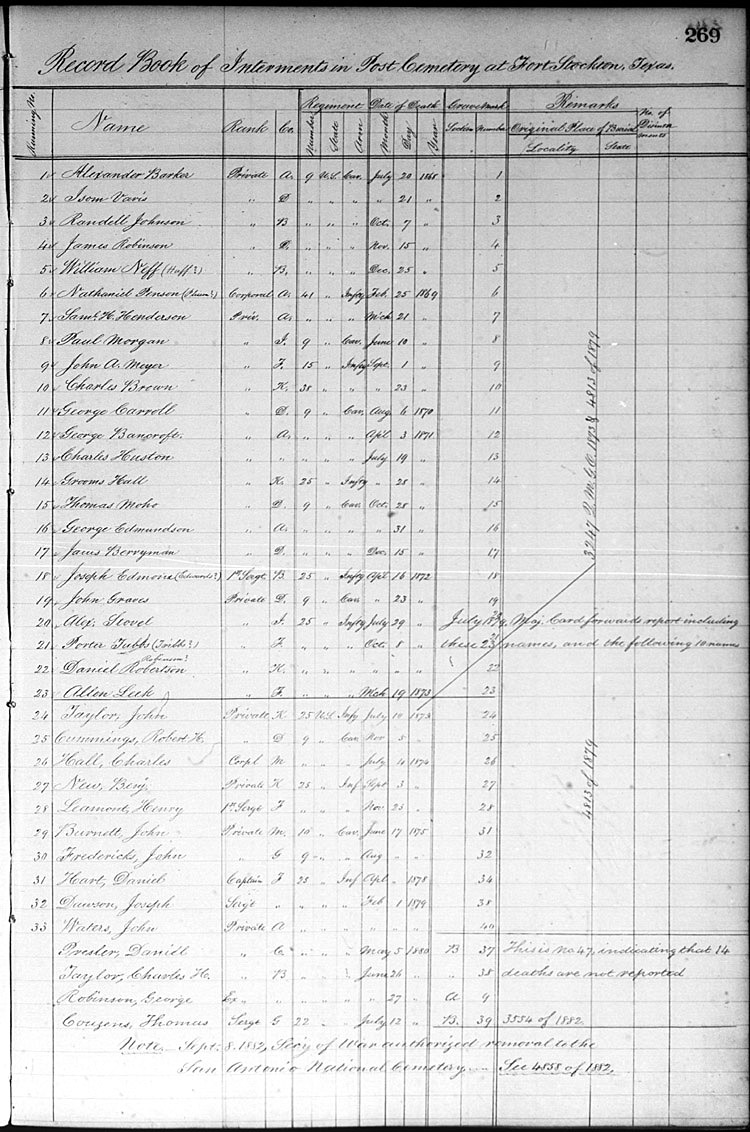 269
Record Book of Interments in Post Cemetery at Fort Stockton, Texas.
Running No. Name Rank Co. Regiment Number State Arm Date of Death Month Day Year Grave Mark Section Number Remarks Original Place of Burial Locality State No. of Disinterments
1 Alexander Barker Private A. 9 U.S. Cav. July 20 1868 1
2 Isom Davis " D " " " " 21 " 2
3 Randell Johnson " B " " " Oct. 7 " 3
4 James Robinson " D. " " " Nov. 15 " 4
5 William Neff (Huff?) " B. " " " Dec. 25 " 5
6 Nathaniel Penson Corporal A. 41 " Infy Feb. 25 1869 6
7 Saml. H. Henderson Priv. A. " " " Mch 21 " 7
8 Paul Morgan " I. 9 " Cav. June 10 " 8
9 John A. Meyer " F. 15 " Infy Sept. 1 " 9
10 Charles Brown " K. 38 " " " 23 " 10
11 George Carroll " D. 9 " Cav. Aug 6 1870 11
12 George Bancroft. " A. " " " Apl 3 1871 12
13 Charles Huston " " " " July 19 " 13
14 Grooms Hall " K. 25 " Infy " 28 " 14
15 Thomas Moho " D. 9 " Cav. Oct. 28 " 15
16 George Edmundson " A. " " " " 31 " 16
17 James Berryman " D. " " " Dec. 15 " 17
18 Joseph Edmond (Edwards?) 1st Sergt. B 25 " Infy Apl 16 1872 18
19 John Graves Private D. 9 " Cav. " 23 " 19
20 Alex. Stovel " I. 25 " Infty July 29 " 20 July 1879, Maj. Card forwards report including
21 Porter Tubbs (Tribb?) " F. " " " Oct. 8 " 21 these 23 names, and the following 10 names
22 Daniel Robertson Robinson? " K. " " " " 22
23 Allen Leek " F. " " " Mch 19 1873 23
3247 Q.M.G.O. 1873 & 4813 of 1879
24 Taylor, John Private K 25 U.S. Infy July 10 1873 24
25 Cummings, Robert H. " D 9 " Cav Nov 5 " 25
26 Hall, Charles Corpl M " " " July 4 1874 26
27 New, Benj. Private K 25 " Inf Sept 3 " 27
28 Leamont, Henry 1st Sergt F " " " Nov. 25 " 28
29 Burnett, John Private M. 10 " Cav. June 17 1875 31
30 Fredericks, John " G 9 " " Aug " " 32
31 Hart, Daniel Captain F 25 " Inf Apl " 1878 34
32 Dawson, Joseph Sergt " " " " Feb 1 1879 38
33 Waters, John Private A 40
4813 of 1879
Prester, Daniel " C. " " " May 5 1880 B 37 This is no 47, indicating that 14
Taylor, Charles H. " B " " " June 26 " " 38 deaths are not reported
Robinson, George Ex " " " " " " 27 " A 9
Couzens, Thomas Sergt G 22 " " July 12 " B. 39 3554 of 1882
Note. Sept. 8. 1882, Secy of War authorized removal to the
San Antonio National Cemetery — See 4858 of 1882.